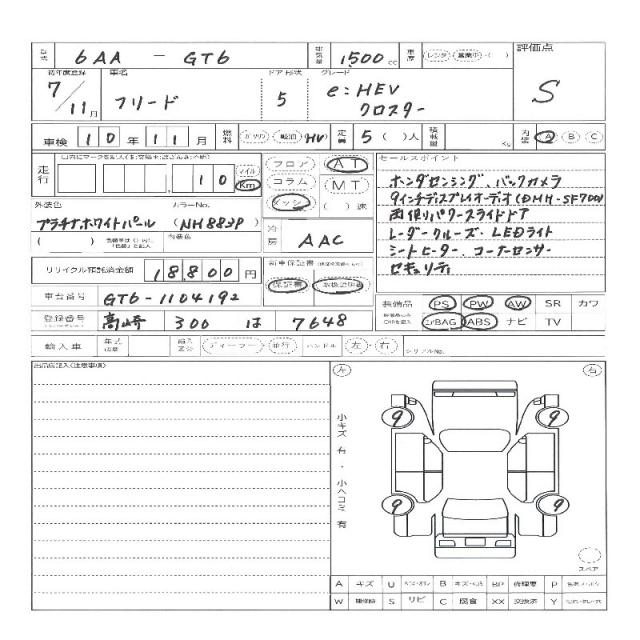 型式 6AA - GT6 排気量 1,500 cc 車歴 (レンタ)(営業中)・( ) 評価点 S
初年度登録 7/11月 車名 フリード ドア形状 5 グレード e:HEV クロスター
車検 10年11月 燃料 (ガソリン)(軽油)(HV) 定員 5( )人 積載量 Kg 内装 A B C
走行 10 マイル Km
フロア AT
コラム MT
( )速
セールスポイント
ホンダセンシング、バックカメラ
9インチディスプレイオーディオ(DMH-SF700)
両側パワースライドドア
レーダークルーズ・LEDライト
シートヒーター、コーナーセンサー
セキュリティ
外装色 カラーNo.
プラチナホワイトパール (NH883P)
( ) 内装色
冷房 AAC
リサイクル預託済金額 18800円
新車保証書
保証書 取扱説明書
車台番号 GT6-1104192
装備品 PS PW AW SR カワ
エアBAG ABS ナビ TV
登録番号 高崎 300 は 7648
輸入車 年式 輸入区分 (ディーラー)・(並行) ハンドル 左・右 シリアルNo.
出品店記入(注意事項)
左 右
小キズ有・小ヘコミ有
9 9
9 9
スペア
A キズ U B BP 修理要 P
W S サビ C 腐食 XX 交換済 Y